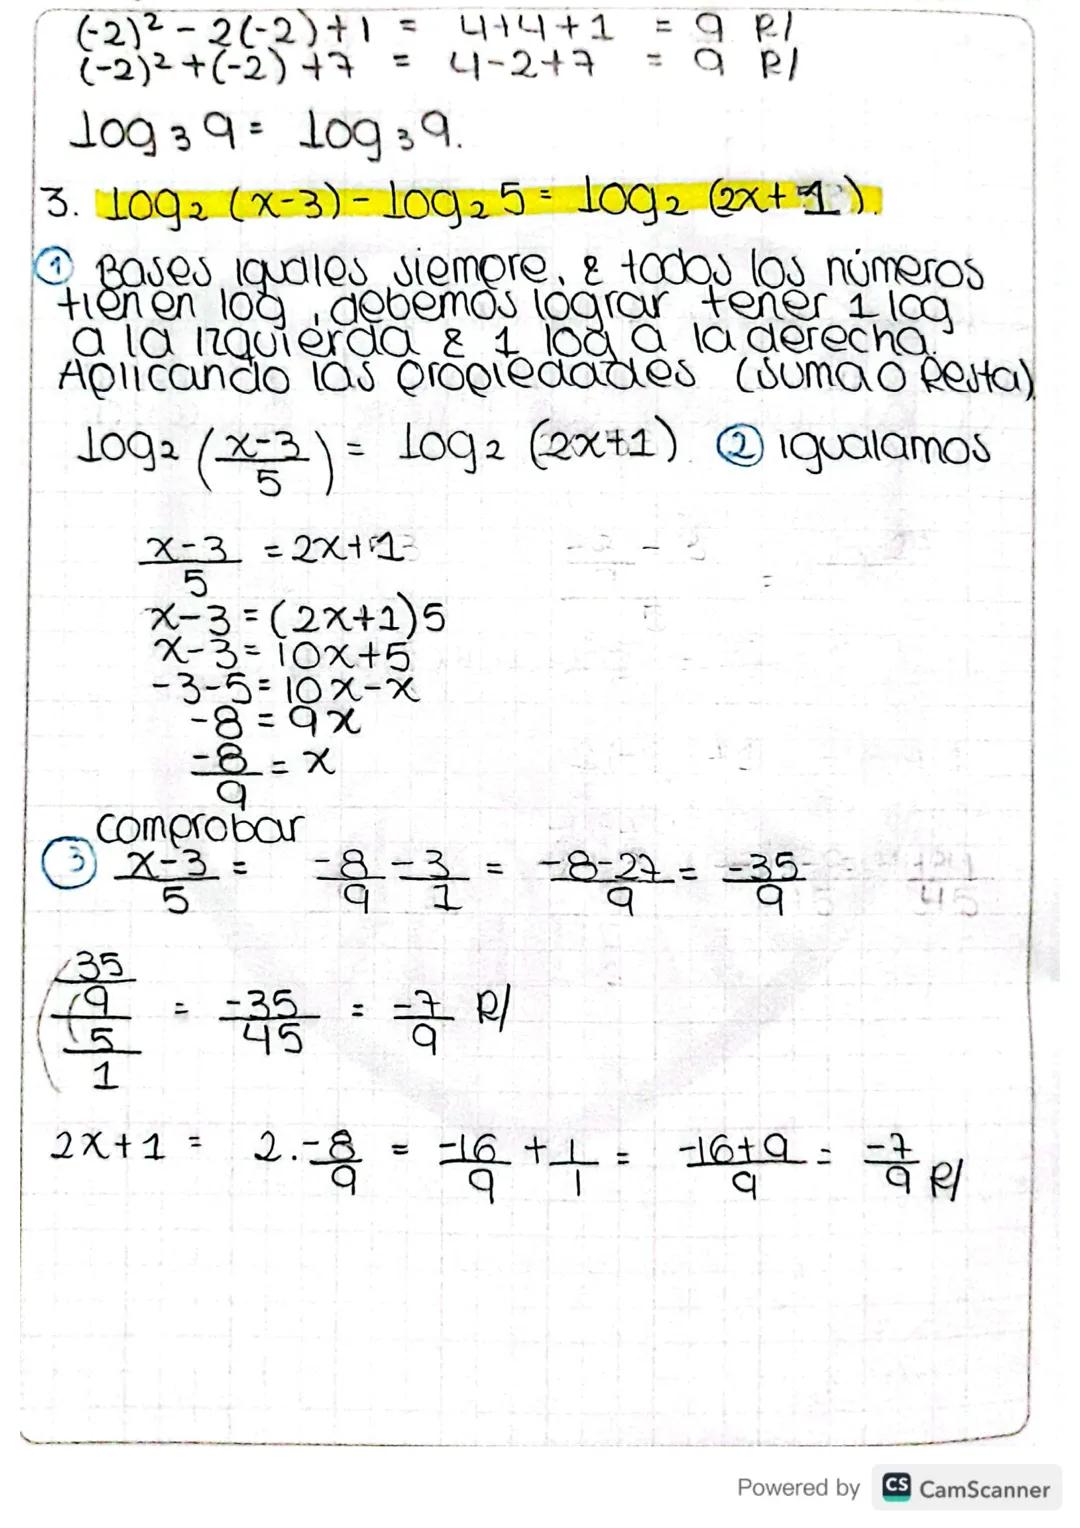 (-2)² - 2(-2)+1 = 4+4+1 = 9 R/
(-2)²+(-2)+7 = 4-2+7 = 9 R/
log₃9 = log₃9.
3. log₂(x-3) - log₂5 = log₂(2x+1).
① Bases iguales siempre, & todos los números
tienen log, debemos lograr tener 1 log
a la izquierda & 1 log a la derecha.
Aplicando las propiedades (suma o Resta)
log₂((x-3)/5) = log₂(2x+1) ② igualamos
(x-3)/5 = 2x+1
x-3=(2x+1)5
x-3=10x+5
-3-5=10x-x
-8=9x
-8/9 = x
comprobar
③ (x-3)/5 = -8/9 - 3/1 = (-8-27)/9 = -35/9
(-35/9)/(5/1) = -35/45 = -7/9 R/
2x+1 = 2.-8/9 = -16/9 + 1/1 = (-16+9)/9 = -7/9 R/
Powered by CS CamScanner